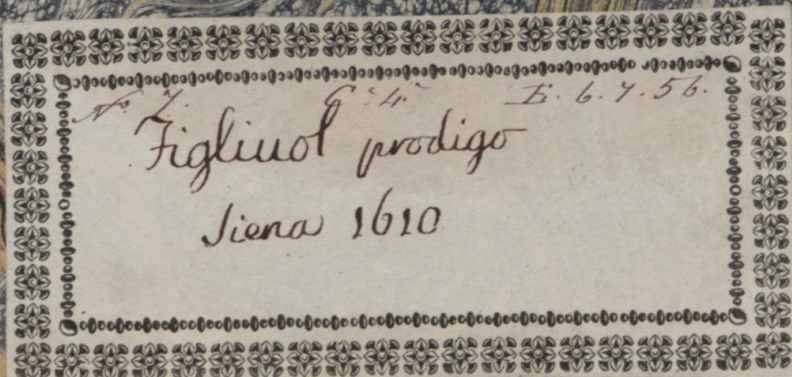 No 7. G. 4. E. 6. 7. 56.
Figliuol prodigo
Siena 1610